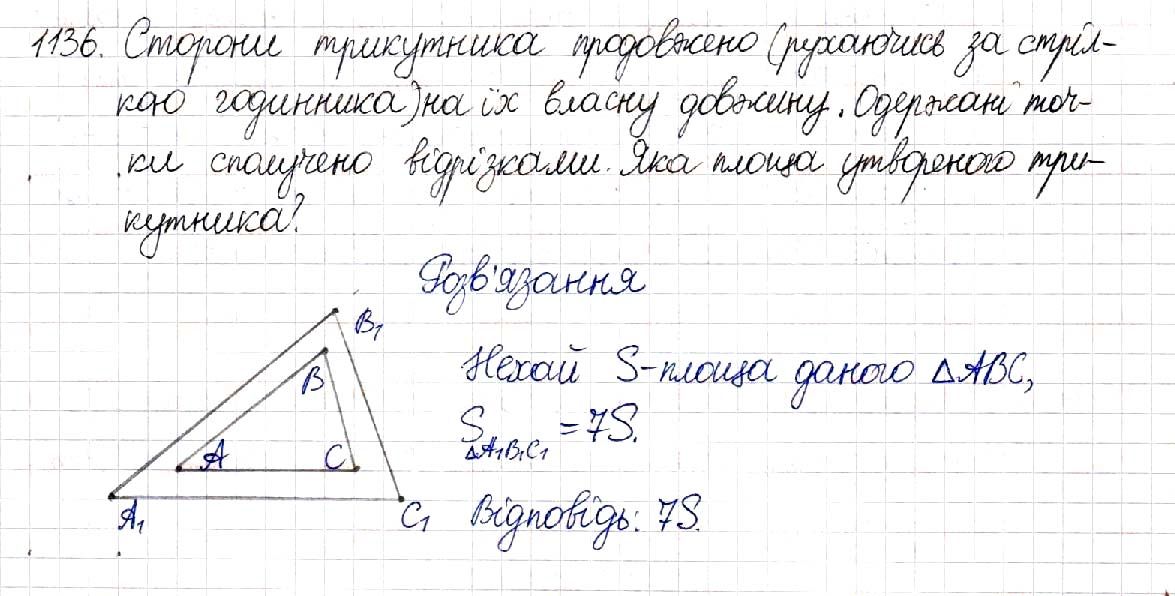 1136. Сторони трикутника продовжено (рухаючись за стріл-
кою годинника) на їх власну довжину. Одержані точ-
ки сполучено відрізками. Яка площа утвореного три-
кутника?
Розв'язання
B₁
B
Нехай S-площа даного △ABC,
S△A₁B₁C₁ = 7S.
A C
A₁ C₁
Відповідь: 7S.